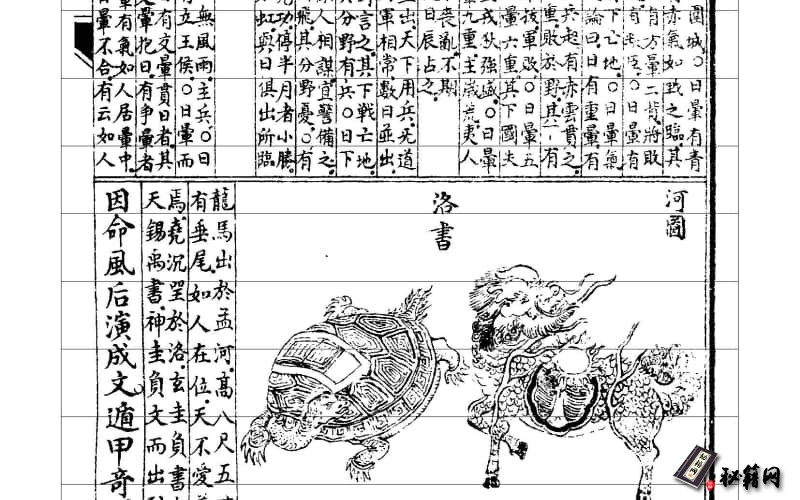 圍城〇日暈有青
赤氣如戟之臨其
有方暈二背將敗
〇日暈有
下亡地〇日暈氣
論曰日有重暈有
兵起有赤雲貫之
重敗於野其一有
技軍敗〇日暈五
暈六重其下國失
戎狄強盛〇日暈
九重主歲荒夷人
喪亂不期
日辰占之
出天下用兵无道
軍相常數日並出
言之其下戰亡地
分野有兵〇日下
人相謀宜警備之
飛其分野憂〇有
功停半月者小勝
虹與日俱出所臨
無風雨主兵〇日
有立王侯〇日暈而
有文暈貫日者其
暈抱日有爭暈者
暈有氣如人居暈中
暈不合有云如人
河圖
洛書
龍馬出於孟河高八尺五
有垂尾如人在位天不愛
焉堯沉璧於洛玄圭負書
天錫禹書神圭負文而出
因命風后演成文遁甲奇
秘籍网